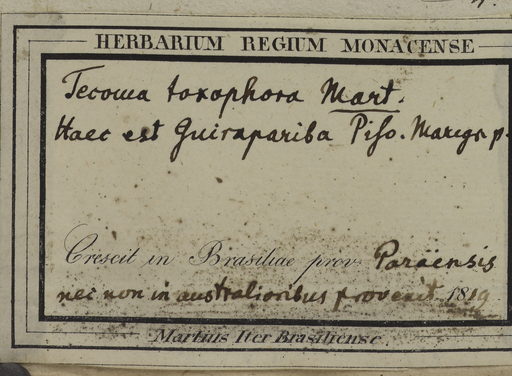 HERBARIUM REGIUM MONACENSE
Tecoma toxophora Mart.
Haec est Guirapariba Piso. Marcgr. p.
Crescit in Brasiliae prov. Paraënsis
nec non in australioribus provenit 1819
Martius Iter Brasiliense